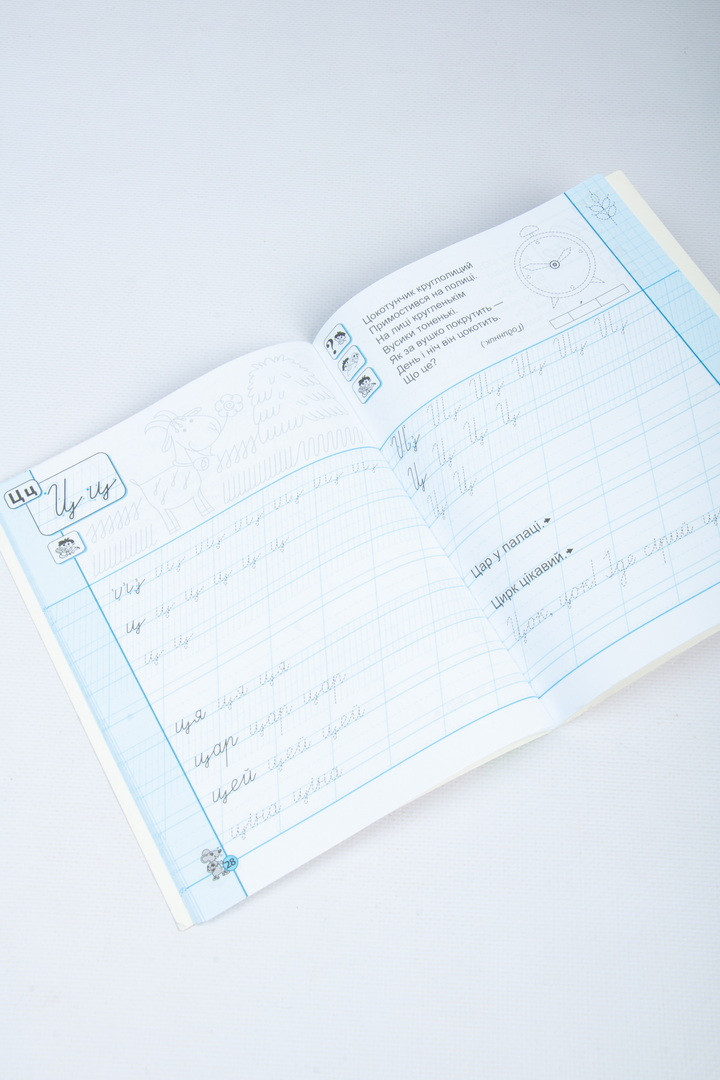 Цц
Ц ц
ц ц ц ц ц ц ц
ц ц ц ц ц ц
ц ц
ця ця ця
цар цар цар
цей цей цей
28
Цокотунчик круглолиций
Примостився на полиці.
На лиці кругленькім
Вусики тоненькі.
Як за вушко покрутить —
День і ніч він цокотить.
Що це?
(Годинник.)
Ц Ц Ц Ц Ц Ц
Ц Ц Ц Ц
Ц Ц
Цар у палаці.
Цирк цікавий.
Цок, цок! Іде сірий